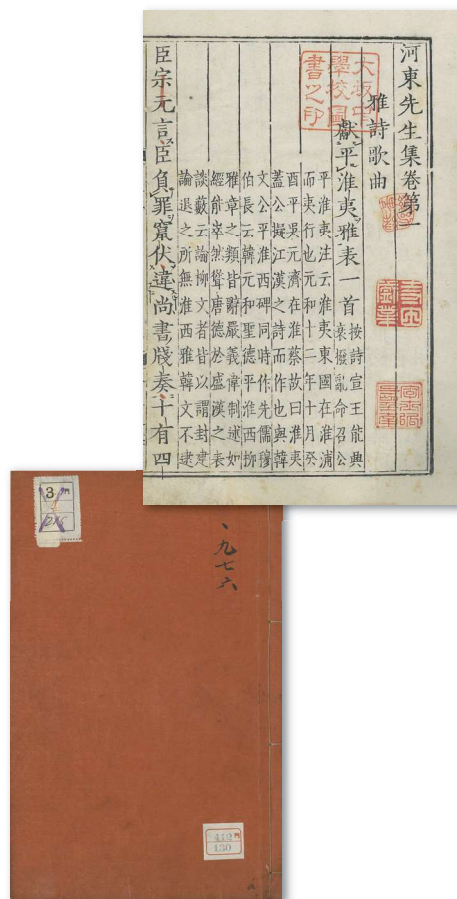 河東先生集卷第一
雅詩歌曲
獻平淮夷雅表一首
按詩宣王能興
衰撥亂命召公
平淮夷注云淮夷東國在淮浦
而夷行也元和十二年十月癸
酉平吳元濟在淮蔡故曰淮夷
蓋公擬江漢之詩而作也與韓
文公平淮西碑同時作先儒穆
伯長云韓元和聖德平淮西柳
雅章之類皆辭嚴義偉制述如
經能崒然聳唐德於盛漢之表
談藪云論柳文者皆以謂封建
論退之所無淮西雅韓文不逮
臣宗元言臣負罪竄伏違尚書牋奏十有四
大阪中
學校圖
書之印
3
215
一九七六
412
130